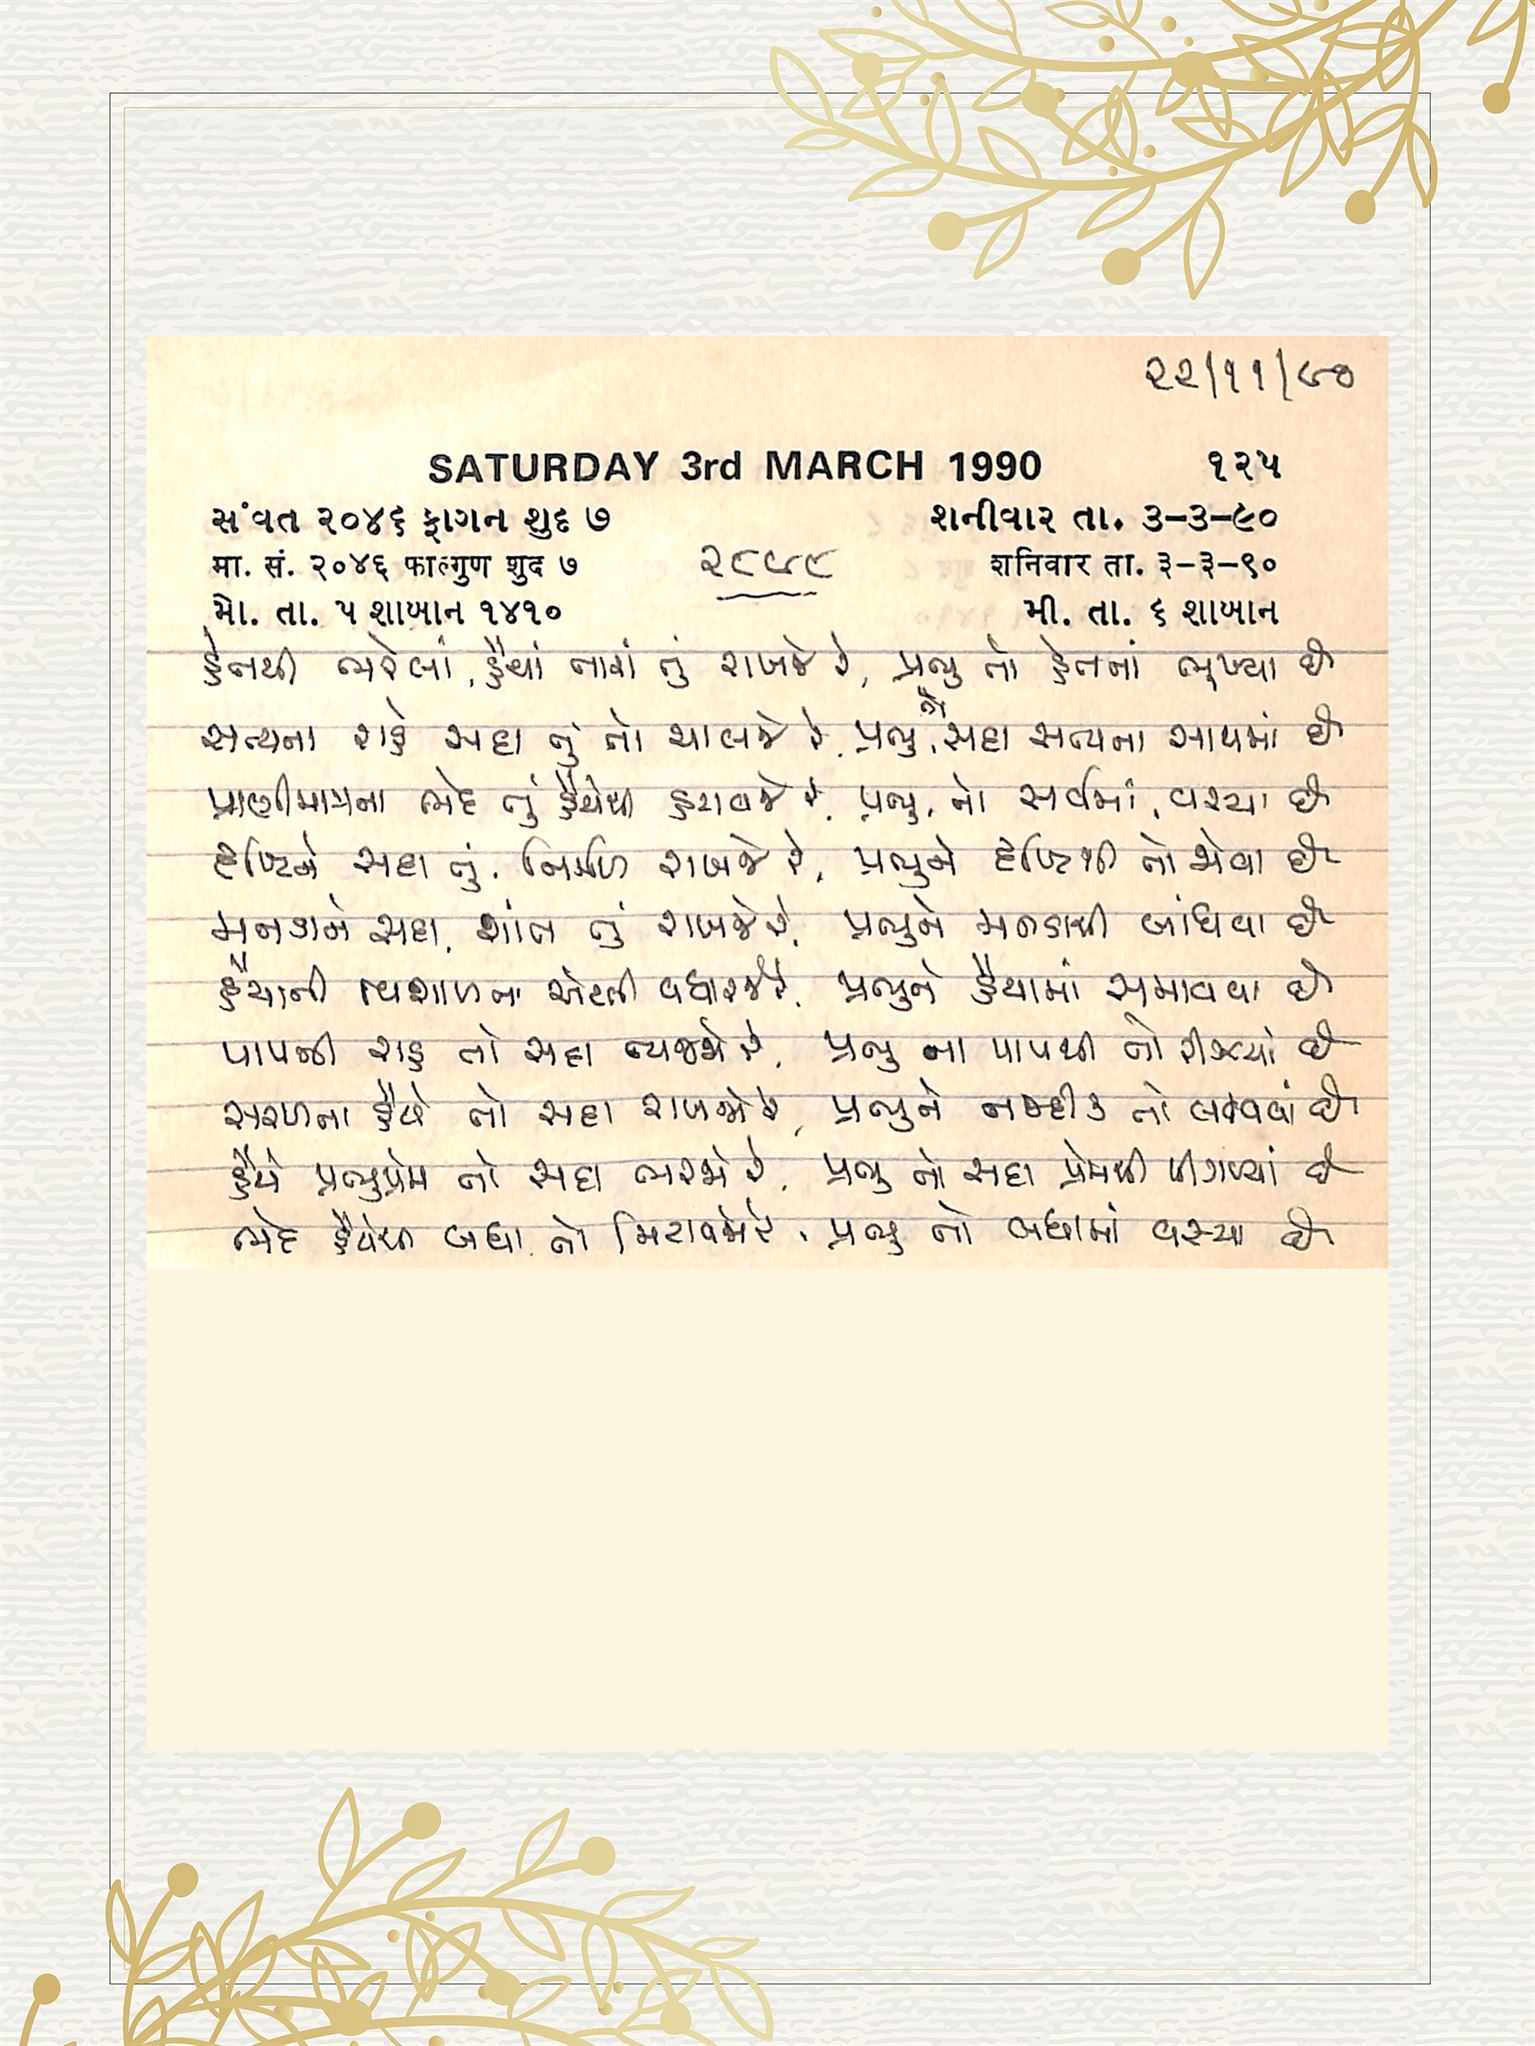 ૨૨/૧૧/૯૦
SATURDAY 3rd MARCH 1990 ૧૨૫
સંવત ૨૦૪૬ ફાગન શુદ ૭ શનીવાર તા. ૩-૩-૯૦
मा. सं. २०४६ फाल्गुण शुद ७ ૨૮૯૯ शनिवार ता. ३-३-९०
મો. તા. ૫ શાબાન ૧૪૧૦ મી. તા. ૬ શાબાન
હેતથી ભરેલાં, હૈયાં તારાં તું રાખજે રે, પ્રભુ તો હેતનાં ભૂખ્યા છે
સત્યના રાહે સદા તું તો ચાલજે રે, પ્રભુ, તો સદા સત્યના સાથમાં છે
પ્રાણીમાત્રના ભેદ તું હૈયેથી હટાવજે રે, પ્રભુ, તો સર્વમાં, વસ્યા છે
દૃષ્ટિને સદા તું, નિર્મળ રાખજે રે, પ્રભુને દૃષ્ટિથી તો જોવા છે
મનડાને સદા, શાંત તું રાખજે રે, પ્રભુને મનડાથી બાંધવા છે
હૈયાની વિશાળતા એટલી વધારજે રે, પ્રભુને હૈયામાં સમાવવા છે
પાપની રાહ તો સદા ત્યજજે રે, પ્રભુ ના પાપથી તો રીઝ્યાં છે
સરળતા હૈયે તો સદા રાખજે રે, પ્રભુને નજદીક તો લાવવાં છે
હૈયે પ્રભુપ્રેમ તો સદા ભરજે રે, પ્રભુ તો સદા પ્રેમથી પીગળ્યાં છે
ભેદ હૈયેથી બધા તો મિટાવજે રે, પ્રભુ તો બધામાં વસ્યા છે